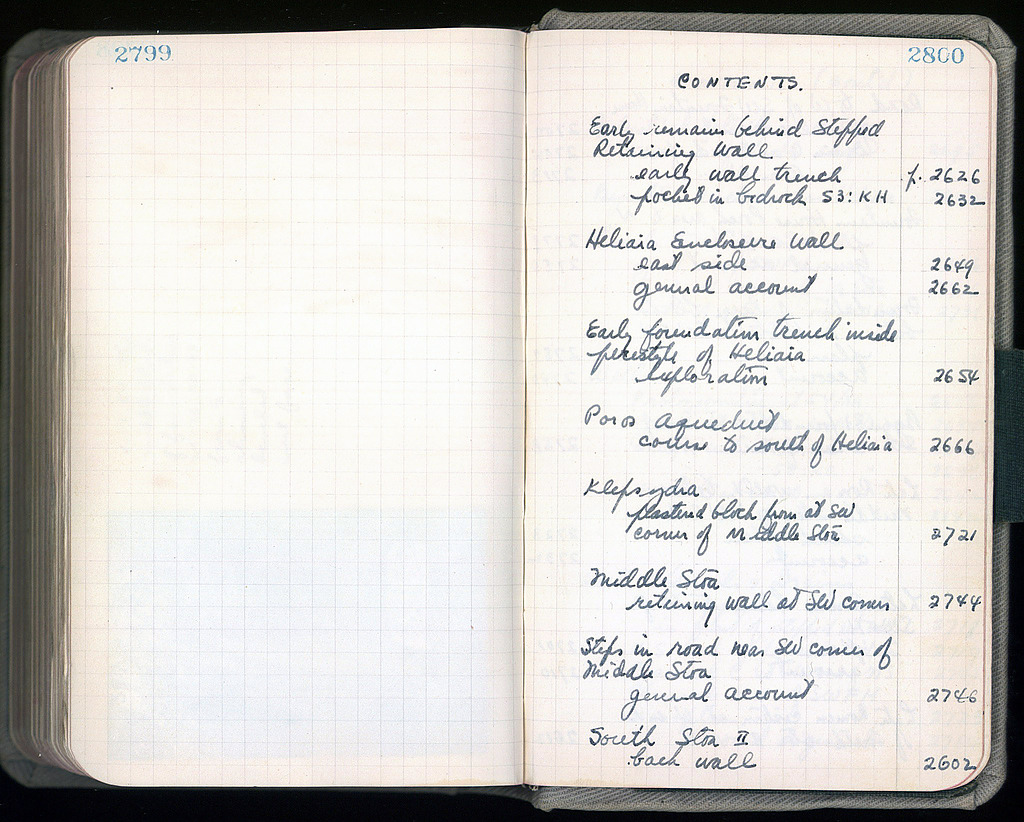 2799
2800
CONTENTS.
Early remains behind Stepped
Retaining Wall
early wall trench p. 2626
pocket in bedrock 53:KH 2632
Heliaia Enclosure Wall
east side 2649
general account 2662
Early foundation trench inside
peristyle of Heliaia
exploration 2654
Poros Aqueduct
course to south of Heliaia 2666
Klepsydra
plastered block from at SW
corner of Middle Stoa 2721
Middle Stoa
retaining wall at SW corner 2744
Steps in road near SW corner of
Middle Stoa
general account 2746
South Stoa II
back wall 2602